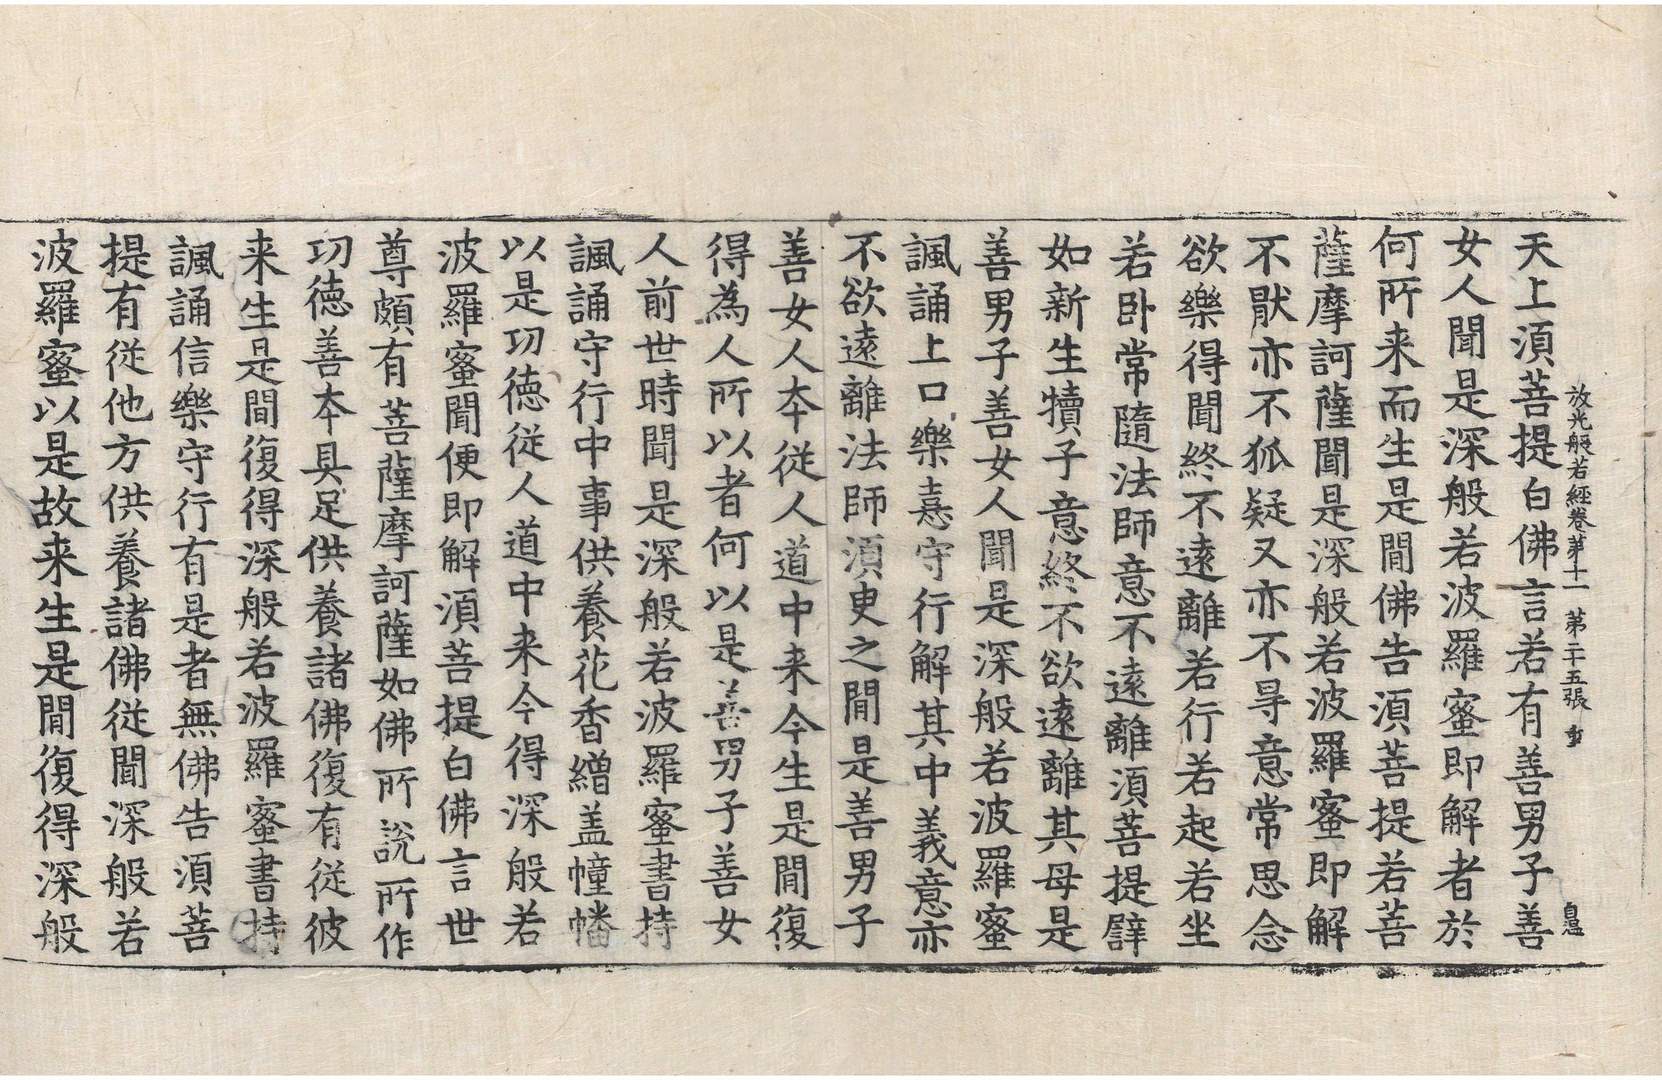 放光般若經卷第十一 第二十五張 重
天上須菩提白佛言若有善男子善
女人聞是深般若波羅蜜即解者於
何所来而生是閒佛告須菩提若菩
薩摩訶薩聞是深般若波羅蜜即解
不猒亦不狐疑又亦不㝵意常思念
欲樂得聞終不遠離若行若起若坐
若卧常隨法師意不遠離須菩提譬
如新生犢子意終不欲遠離其母是
善男子善女人聞是深般若波羅蜜
諷誦上口樂憙守行解其中義意亦
不欲遠離法師須臾之閒是善男子
善女人夲從人道中来今生是閒復
得為人所以者何以是善男子善女
人前世時聞是深般若波羅蜜書持
諷誦守行中事供養花香繒盖幢幡
以是功德從人道中来今得深般若
波羅蜜聞便即解須菩提白佛言世
尊頗有菩薩摩訶薩如佛所說所作
功德善夲具足供養諸佛復有從彼
来生是閒復得深般若波羅蜜書持
諷誦信樂守行有是者無佛告須菩
提有從他方供養諸佛從聞深般若
波羅蜜以是故来生是閒復得深般